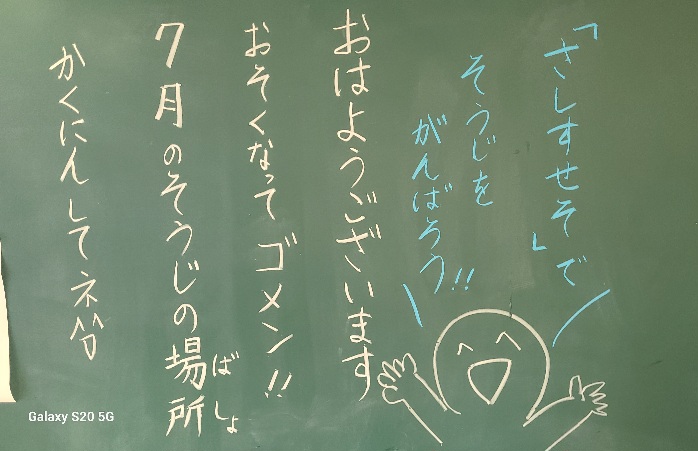 「さしすせそ」で
そうじを
がんばろう!!
おはようございます
おそくなって ゴメン!!
7月のそうじの場所
ばしょ
かくにんしてネ
Galaxy S20 5G